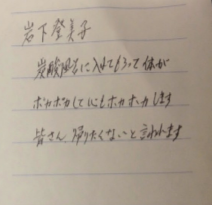 岩下登美子
炭酸風呂に入れてもらって体が
ポカポカして心もホカホカします
皆さん 帰りたくないと言われます